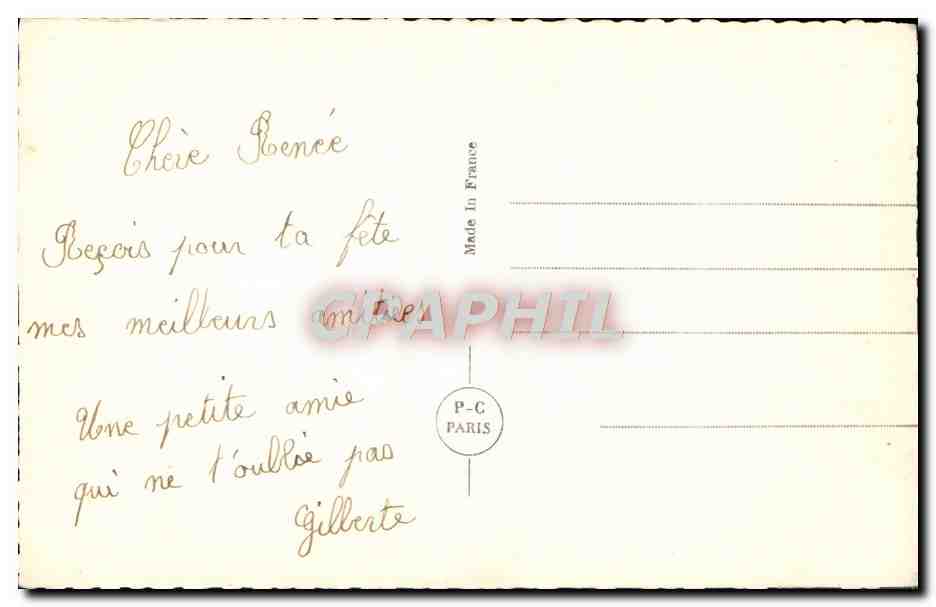 Chère Renée
Reçois pour ta fête
mes meilleurs amitiées
Une petite amie
qui ne t'oublie pas
Gilberte
Made In France
P-C
PARIS
CPAPHIL